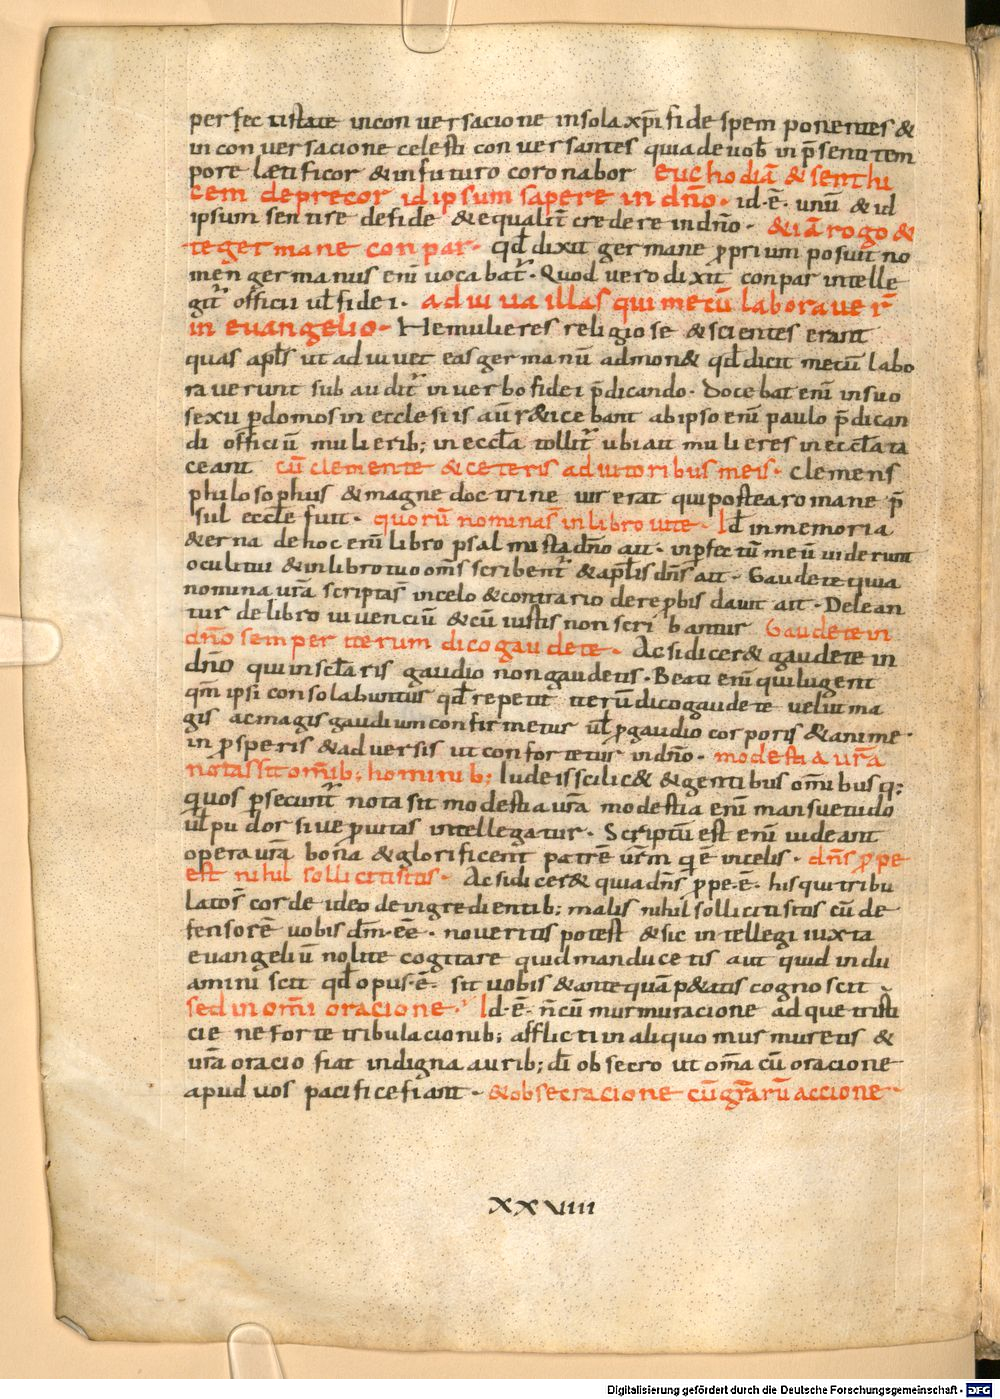 perfectistate inconversacione insola xp̄i fide spem ponentes &
inconversacione celesti conversantes quia de vob̄ in p̄senti tem
pore lætificor & infuturo coronabor euchodiā & senthi
cem deprecor id ipsum sapere in dño· id·ē· unū & id
ipsum sentire de fide & equalit̄ credere indño· & iā rogo &
te germane conpar· qd̄ dixit germane p̄prium posuit no
men germanus eni᷃ vocabat᷑· Quod vero dixit conpar intelle
git᷑ officii ul̄ fidei· adiuva illas qui mecū laboraver̄
in evangelio· He mulieres religiose & scientes erant
quas apl̄s ut adiuvet eas germanū admon& qd̄ dicit mecū labo
raverunt subaudit᷑ in verbo fidei p̄dicando· Docebat eni᷃ in suo
sexu p domos in ecclesiis aū r&icebant ab ipso eni᷃ paulo p̄dican
di officiū mulierib; in eccl̄a tollit᷑ ubi ait mulieres in eccl̄a ta
ceant cū clemente & ceteris adiutoribus meis· clemens
philosophus & magne doctrine vir erat qui postea romane p̄
sul eccl̄e fuit· quorū nomina s̄ in libro vite· Id̄ in memoria
&erna de hoc eni᷃ libro psalmista dño ait· inp̄fectū meū viderunt
oculi tui & in libro tuo om̄s scribent᷑ & apl̄is dn̄s ait· Gaudete quia
nomina vr̄a scripta s̄ in celo & contrario de rep̄bis davit ait· Delean
tur de libro viventiū & cū iustis non scribantur Gaudete in
dño semper iterum dico gaudete· Ac si dicer& gaudete in
dño qui in scl̄aris gaudio non gaudetis· Beati eni᷃ qui lugent
qm̄ ipsi consolabuntur qd̄ repetit iterū dico gaudete velut ma
gis ac magis gaudium confirmetur ul̄ p̄ gaudio corporis & anime·
in p̄speris & adversis ut confortetur in dño· modestia vr̄a
nota sit om̄ib; hominib; Iudeis scilic& & gentibus om̄ibusq;
quos p̄secunt᷑ nota sit modestia vr̄a modestia eni᷃ mansuetudo
ul̄ pudor sive p̄vitas intellegatur· Scriptū est eni᷃ videant
opera vr̄a bona & glorificent patrē vr̄m q̄ ē in celis· dn̄s p̄pe
est nihil solliciti sitis· Ac si dicer& quia dn̄s p̄pe·ē· his qui tribu
latos corde ideo de ingredientib; malis nihil solliciti sitis cū de
fensorē vobis dm̄·eē· noveritis potest & sic intellegi iuxta
evangeliū nolite cogitare quid manducetis aut quid indu
amini scit qd̄ opus·ē· sit vobis & antequā p&atis cognoscit
sed in om̄i oracione· Id·ē· n̄ cū murmuracione adque tristi
cie ne forte tribulacionib; afflicti in aliquo murmuretis &
vr̄a oracio fiat indigna aurib; dī obsecro ut om̄a cū oracione
apud vos pacifice fiant· & obsecracione cū gr̄arū accione·
XXVIIII
Digitalisierung gefördert durch die Deutsche Forschungsgemeinschaft - DFG